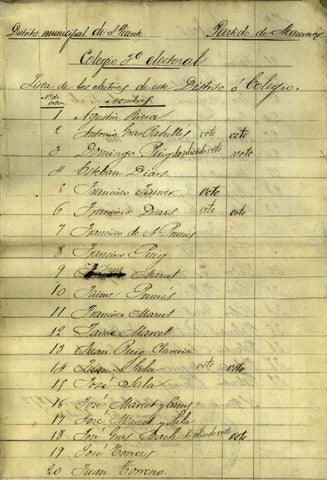 Distrito municipal de Partido de
Colegio 2º electoral
Lista de los electores de este Distrito ó Colegio.
Nº de orden Nombres
1 Agustin Riera
2 Antonio Gras voto voto
3 Domingo Puig duplicado voto voto
4 Esteban Dias
5 Francisco voto
6 Francisco voto voto
7 Francisco de A.
8 Francisco Puig
9 José Marcet
10 Jaime
11 Francisco Marcet
12 Jaime Marcet
13 Juan Puig Claveria
14 Juan Sala voto voto
15 José Sala
16 José Marcet y
17 José Marcet y Sala
18 José Gras Bach duplicado voto voto
19 José
20 Juan Torrens